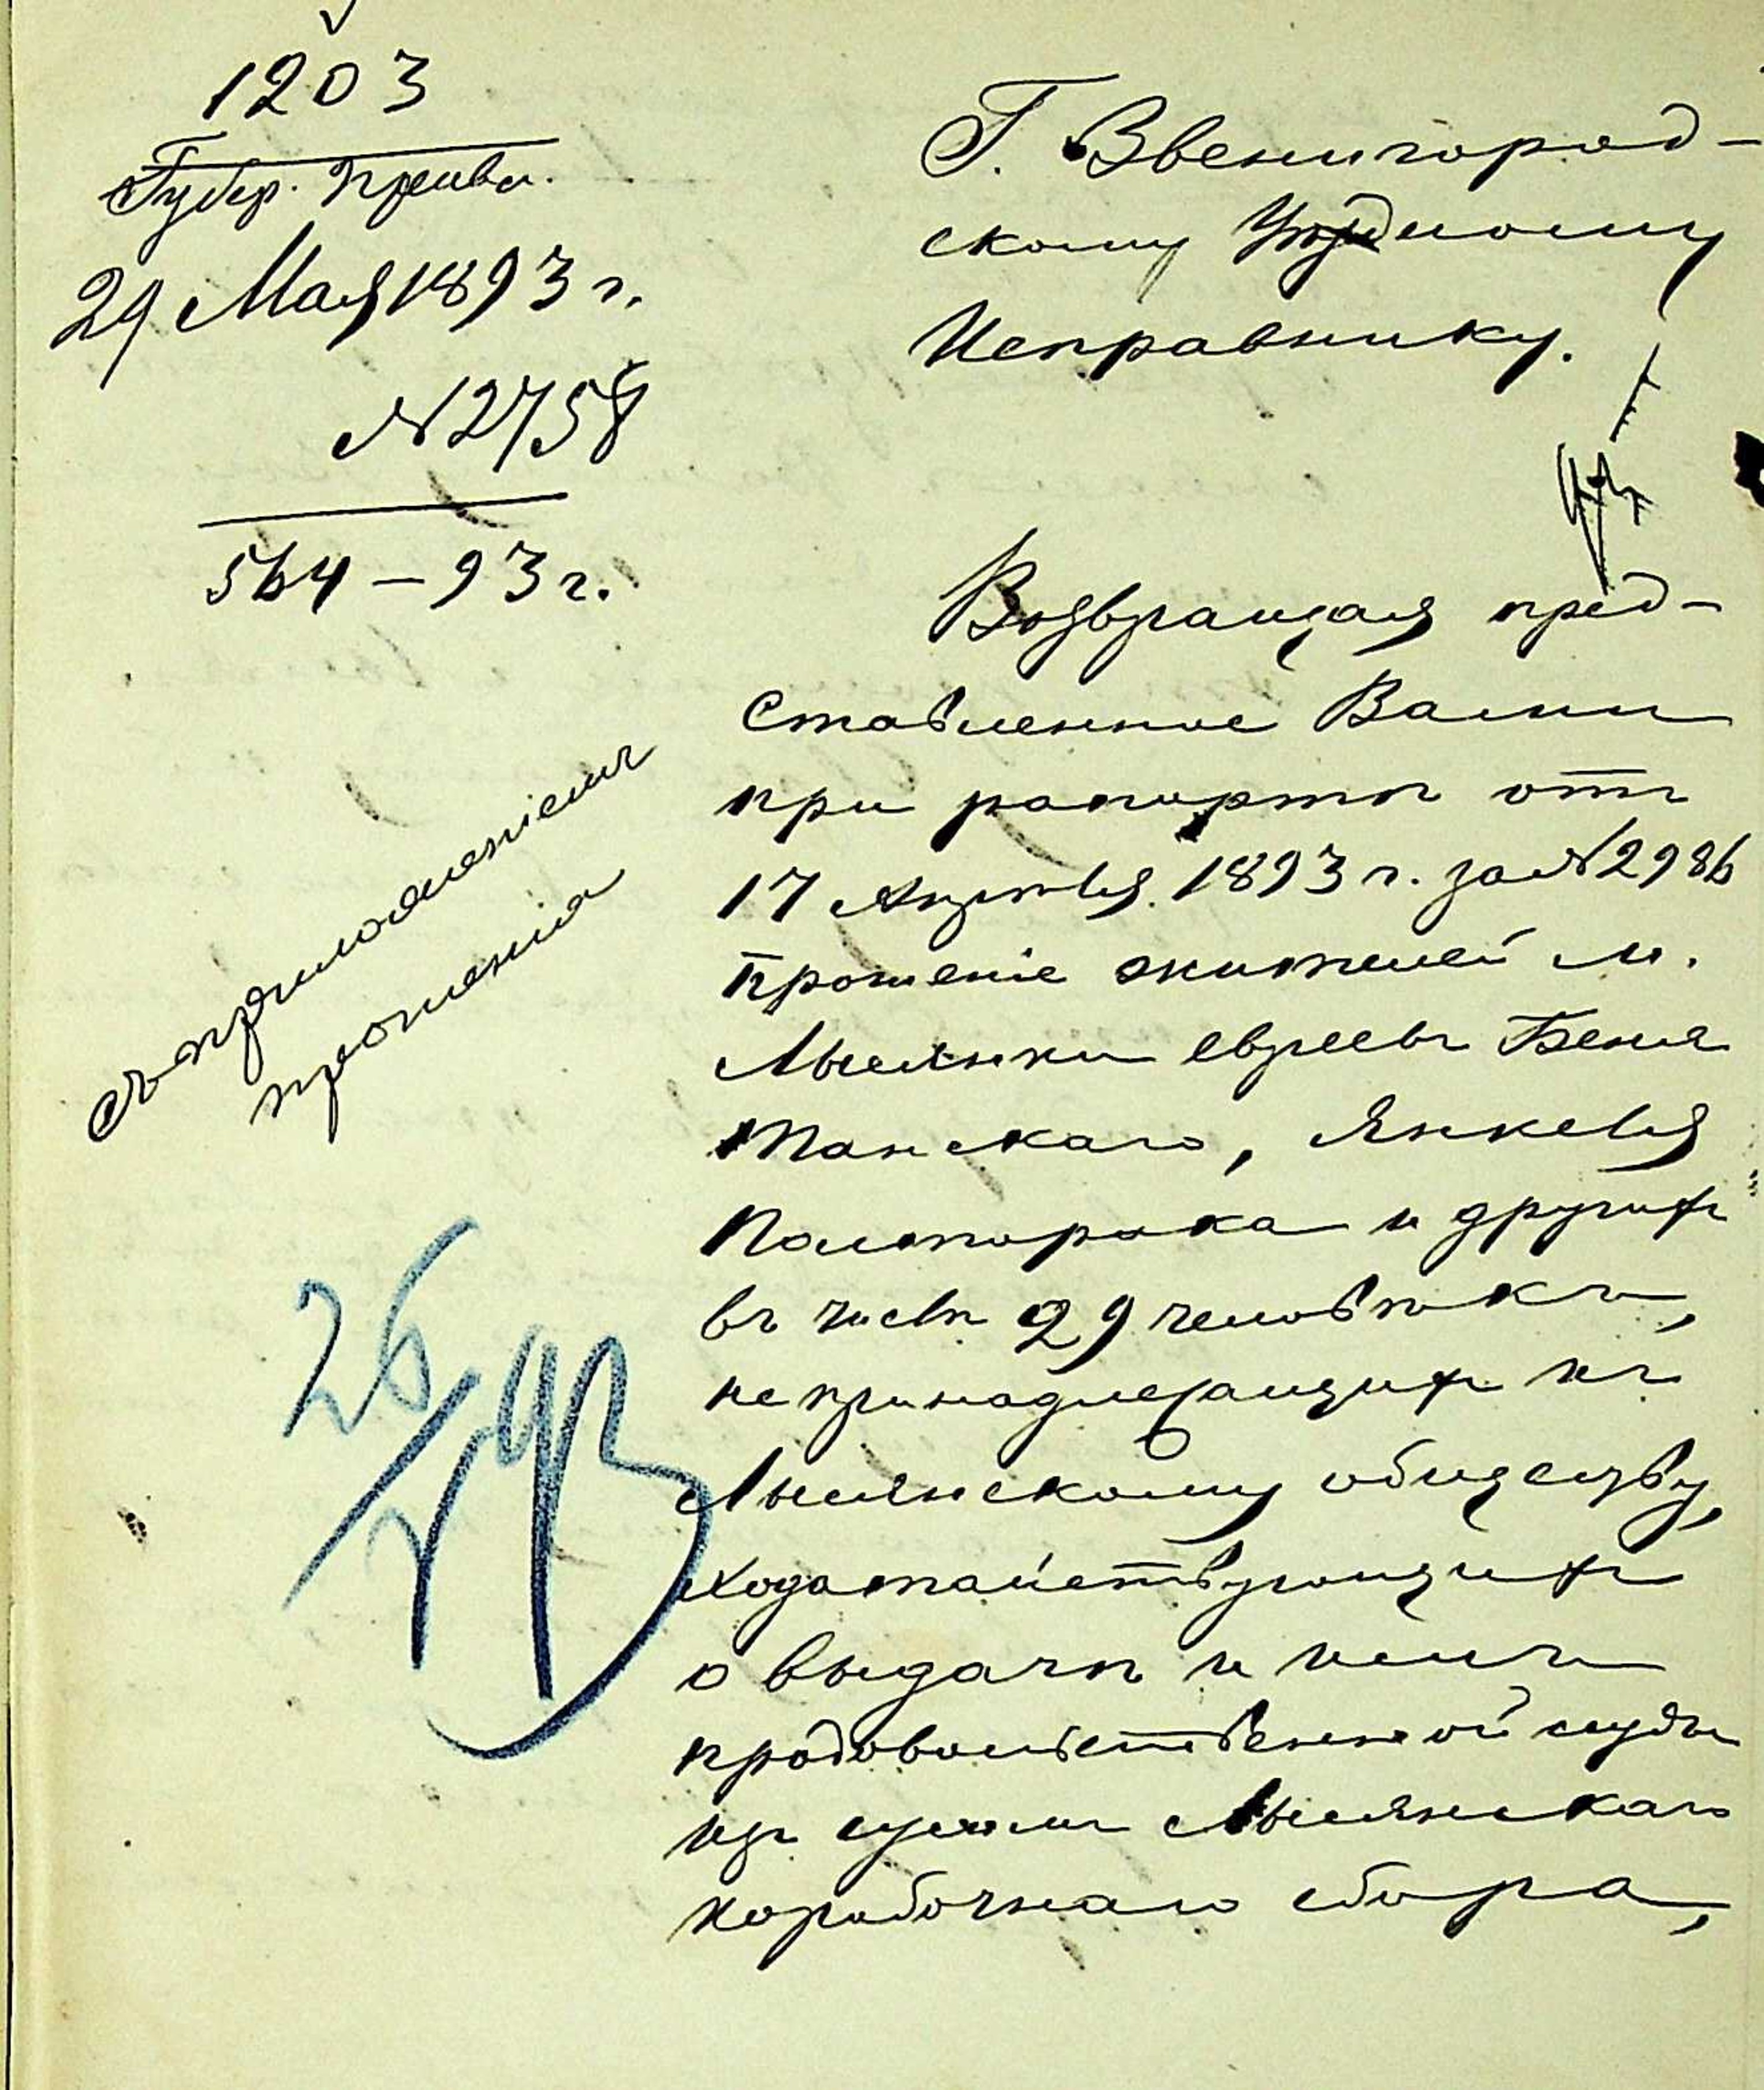 1203
Губер. Правл.
29 Мая 1893 г.
№ 2758
564 – 93 г.
съ приложеніемъ
прошенія
Г. Звенигород-
скому Уѣздному
Исправнику.
Возвращая пред-
ставленное Вами
при рапортѣ отъ
17 Апрѣля 1893 г. за № 2986
прошеніе жителей м.
Лысянки евреевъ Бенія
Танскаго, Янкеля
Полторака и другихъ
въ числѣ 29 человѣкъ,
не принадлежащихъ къ
Лысянскому обществу,
ходатайствующихъ
о выдачѣ и имъ
продовольственной ссуды
изъ суммъ Лысянскаго
коробочнаго сбора,